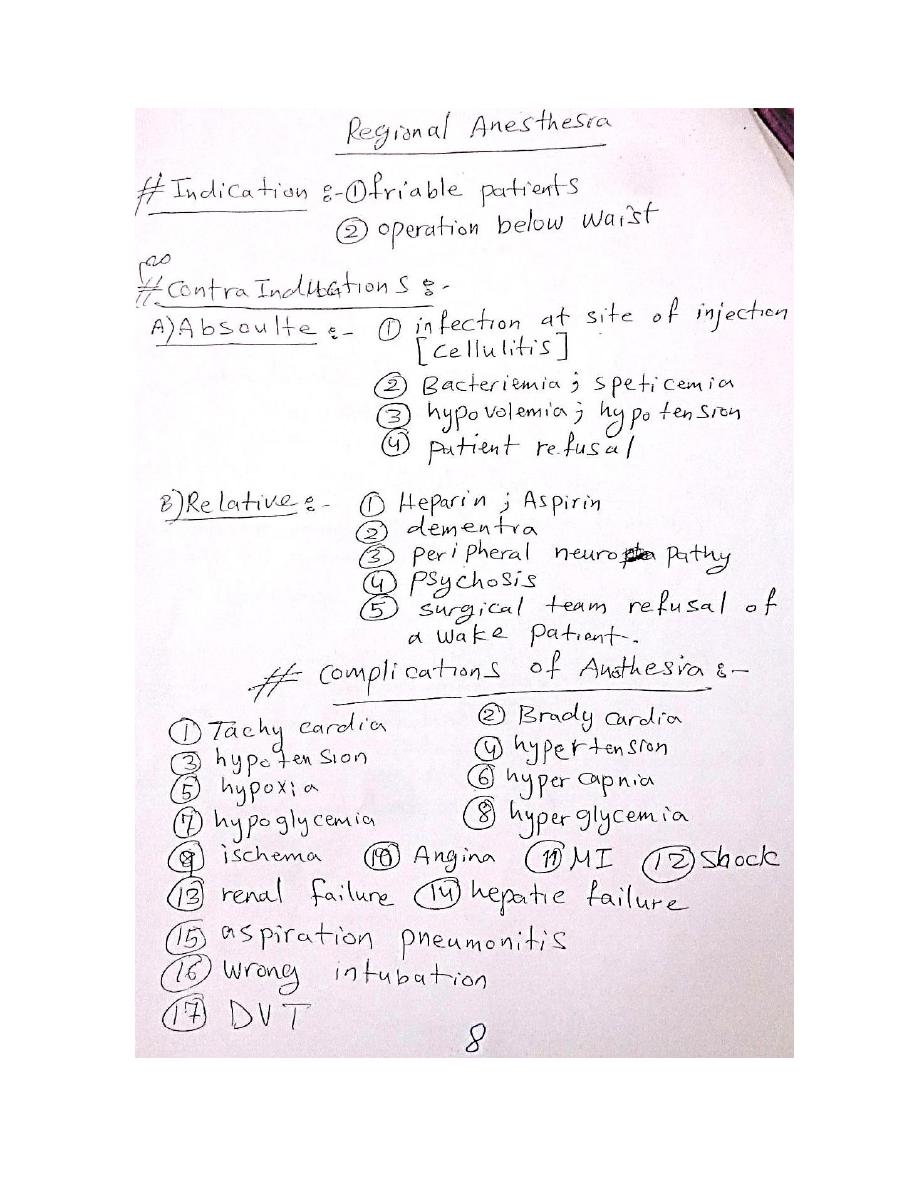 Regional Anesthesia
# Indication :- ① friable patients
② operation below waist
# Contra Indications :-
A) Absoulte :- ① infection at site of injection
[cellulitis]
② Bacteriemia ; speticemia
③ hypovolemia ; hypotension
④ patient refusal
B) Relative :- ① Heparin ; Aspirin
② dementia
③ peripheral neuropathy
④ psychosis
⑤ surgical team refusal of
a wake patient.
# Complications of Ansthesia :-
① Tachy cardia ② Brady cardia
③ hypotension ④ hypertension
⑤ hypoxia ⑥ hyper capnia
⑦ hypoglycemia ⑧ hyperglycemia
⑨ ischema ⑩ Angina ⑪ MI ⑫ Shock
⑬ renal failure ⑭ hepatic failure
⑮ aspiration pneumonitis
⑯ wrong intubation
⑰ DVT
8